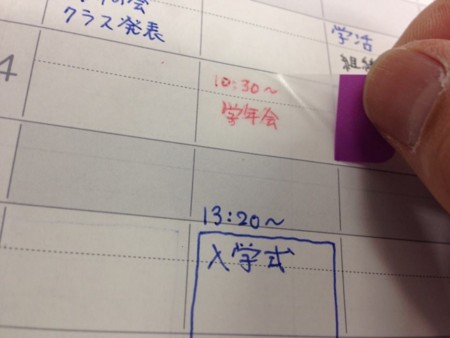 クラス発表
学活
4
10:30～
学年会
13:20～
入学式